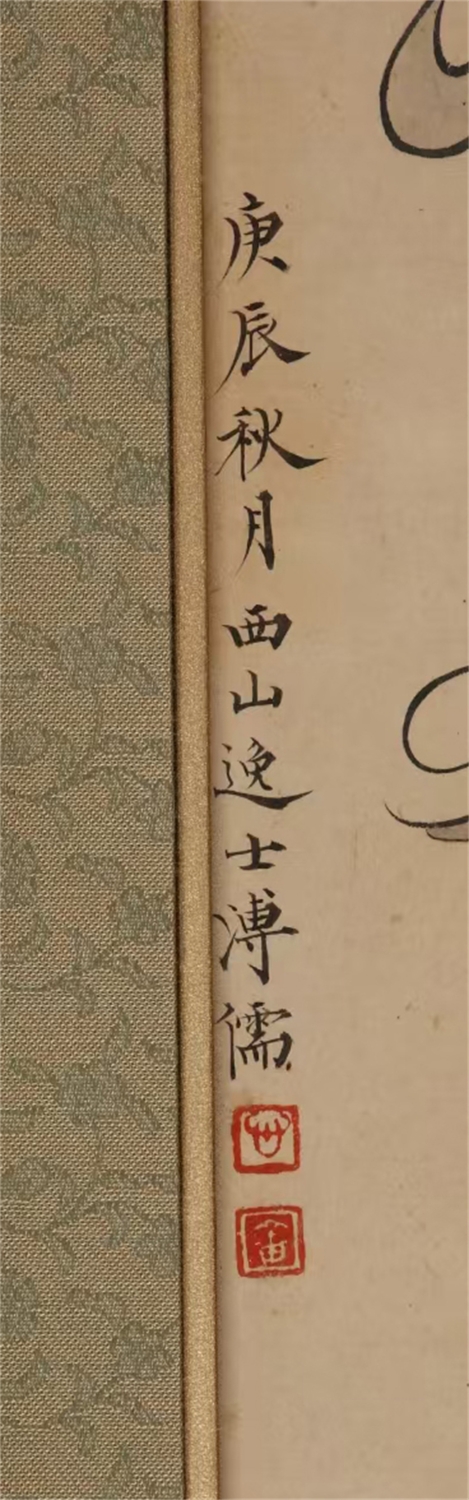 庚辰秋月西山逸士溥儒